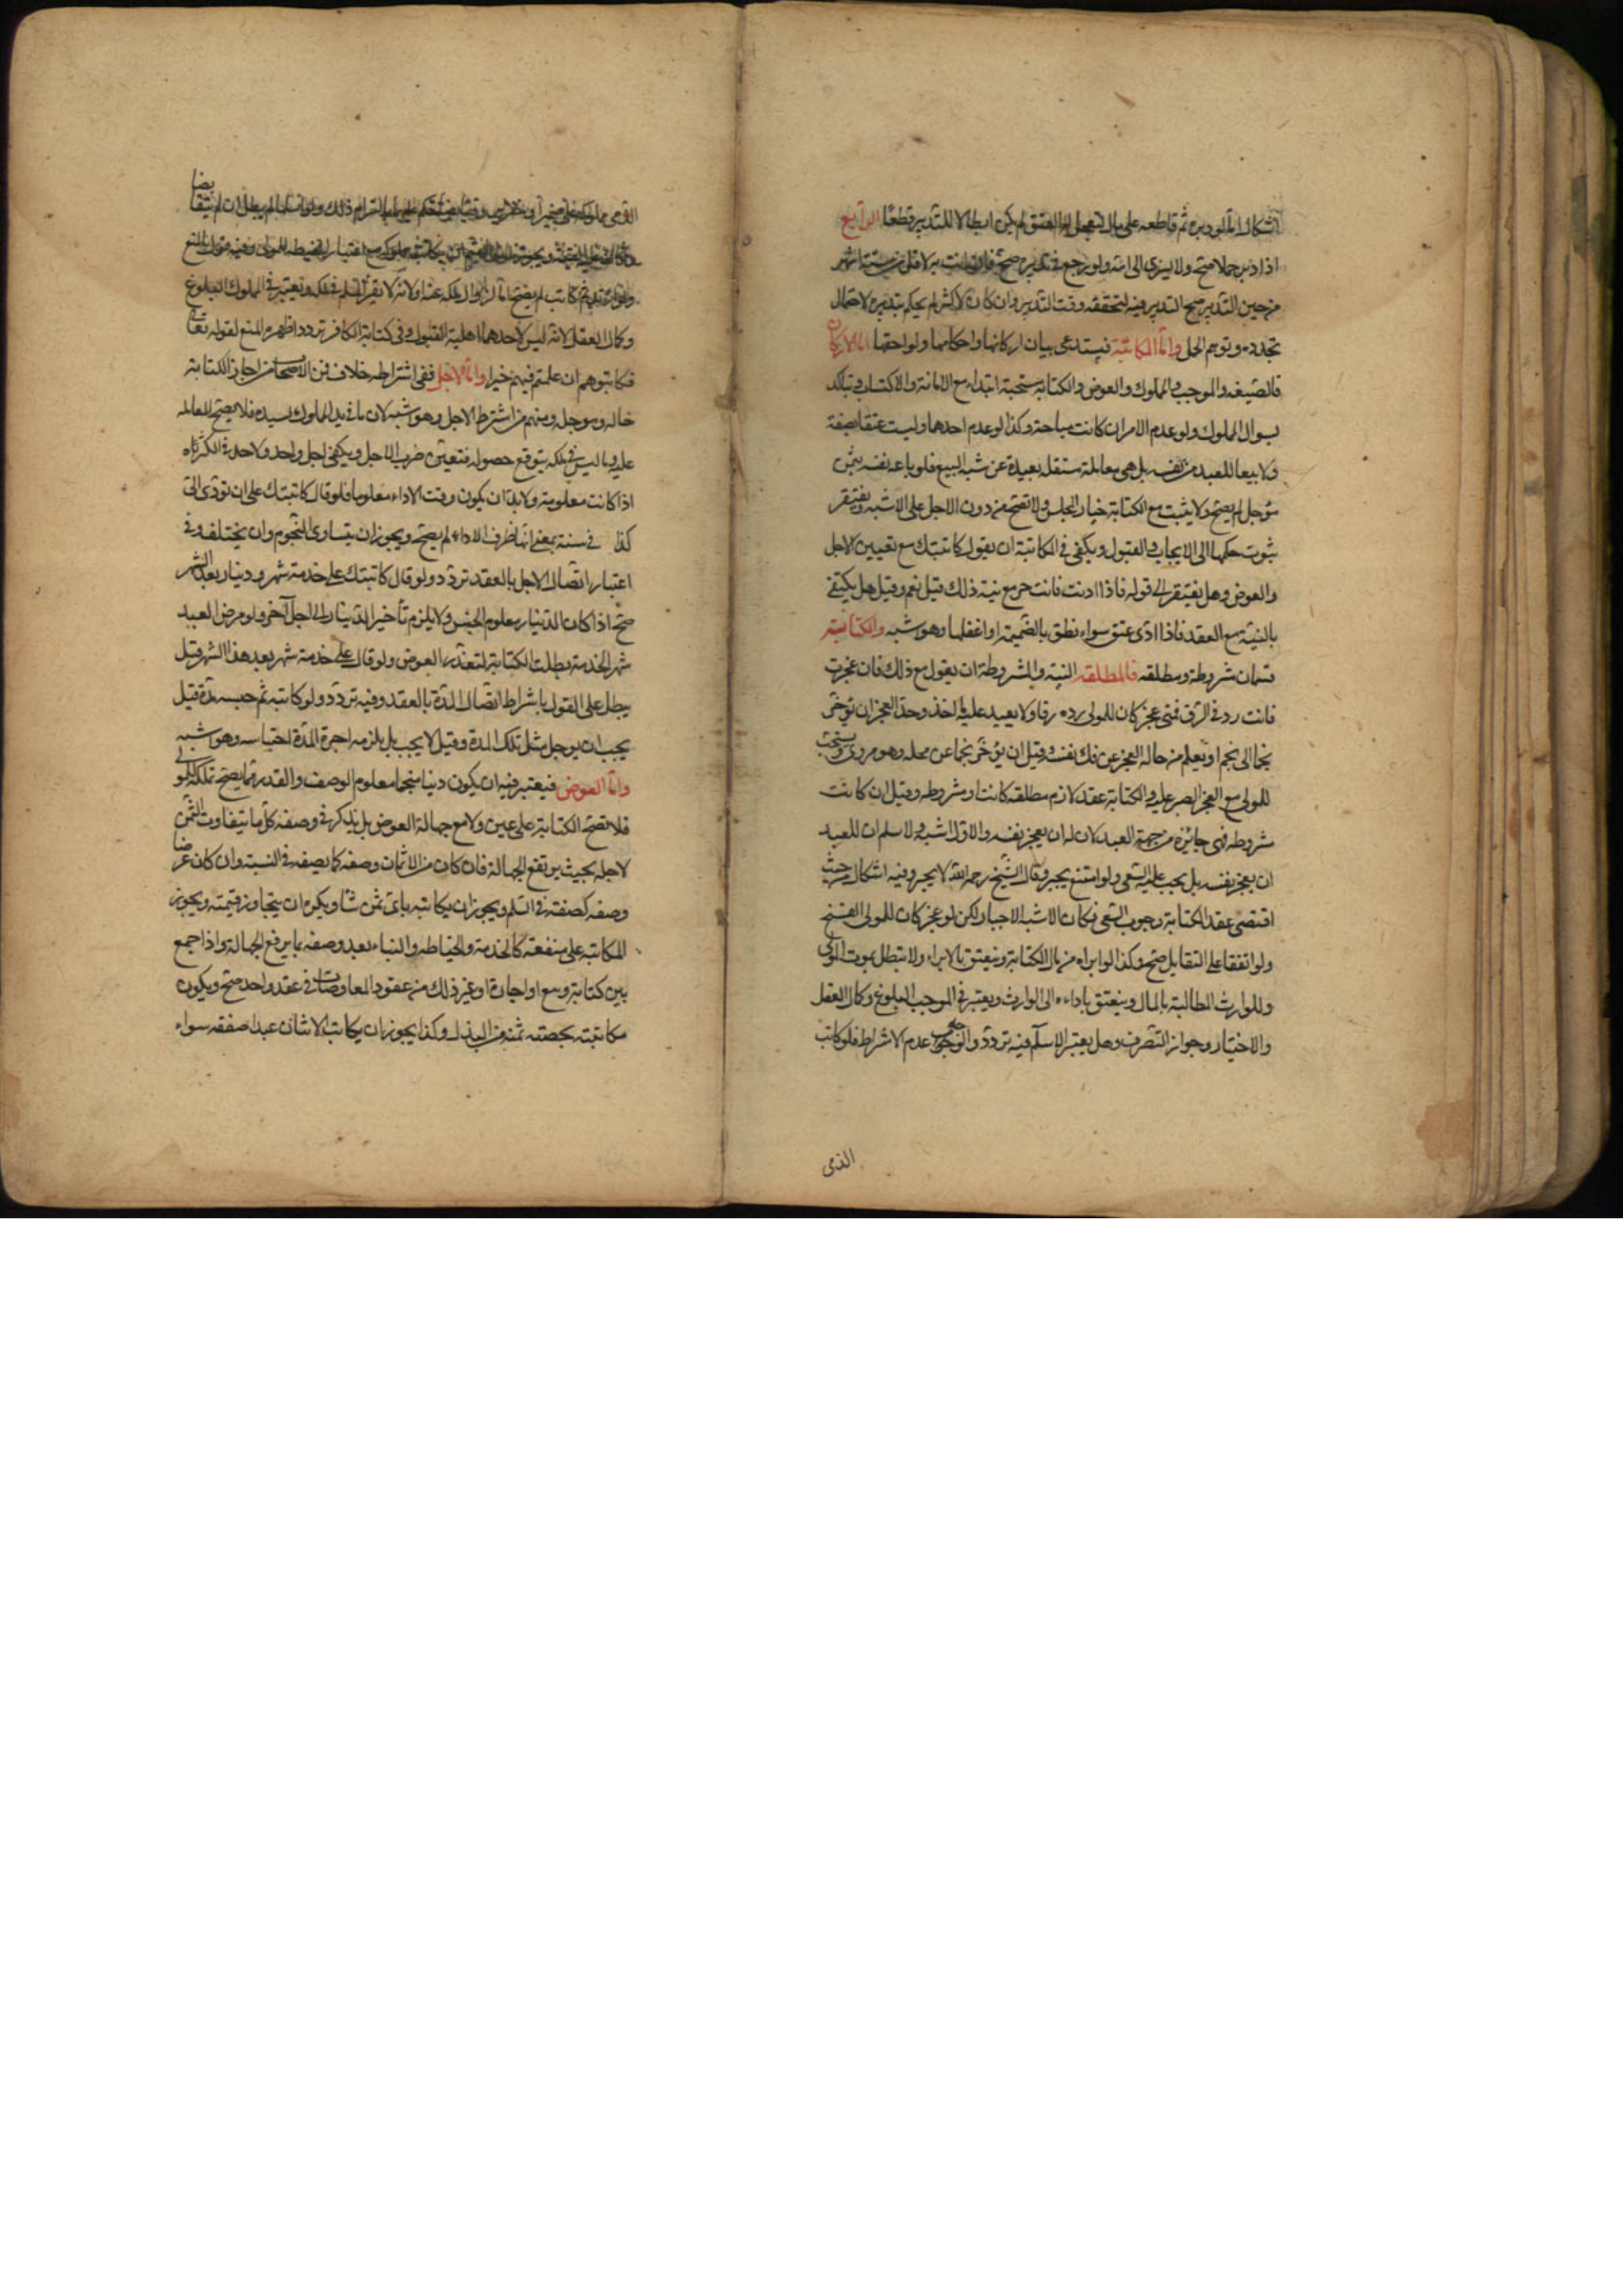 اشكال اما لو دبره ثم قاطعه على مال لتعجيل له العتق لم يكن ابطالا للتدبير قطعا الرابع
اذا دبر حملا صح ولا يسرى الى امه ولو رجع فى تدبيره صح فان اتت به لاقل من ستة اشهر
من حين التدبير صح التدبير فيه لتحققه وقت التدبير وان كان لاكثر لم يحكم بتدبيره لاحتمال
تجدده وتوهم الحمل واما المكاتبة فيستدعى بيان اركانها واحكامها ولواحقها اما الاركان
فالصيغه والموجب والمملوك والعوض والكتابة مستحبة ابتداء مع الامانة والاكتساب ويتاكد
بسوال المملوك ولو عدم الامران كانت مباحة وكذا لو عدم احدهما وليست عتقا بصفة
ولا بيعا للعبد من نفسه بل هى معاملة مستقله بعيدة عن شبه البيع فلو باعه نفسه بثمن
مؤجل لم يصح ولا يثبت مع الكتابة خيار المجلس ولا تصح من دون الاجل على الاشبه ويفتقر
ثبوت حكمها الى الايجاب والقبول ويكفى فى المكاتبة ان يقول كاتبتك مع تعيين الاجل
والعوض وهل يفتقر الى قوله فاذا اديت فانت حر مع نية ذلك قيل نعم وقيل بل يكتفى
بالنية مع العقد فاذا ادى عتق سواء نطق بالضميمة او اغفلها وهو اشبه والكتابة
قسمان مشروطة ومطلقه فالمطلقه النية والمشروطة ان يقول مع ذلك فان عجزت
فانت رد فى الرق فمتى عجز كان للمولى رده رقا ولا يعيد عليه ما اخذ وحد العجز ان يؤخر
نجما الى نجم او يعلم من حاله العجز عن فك نفسه وقيل ان يؤخر نجما عن محله وهو مروى ويستحب
للمولى مع العجز الصبر عليه والكتابة عقد لازم مطلقه كانت او مشروطه وقيل ان كانت
مشروطه فهى جائزة من جهة العبد لان له ان يعجز نفسه والاول اشبه ولا نسلم ان للعبد
ان يعجز نفسه بل يجب عليه السعى ولو امتنع يجبر وقال الشيخ رحمه الله لا يجبر وفيه اشكال من حيث
اقتضى عقد الكتابة وجوب السعى فكان الاشبه الاجبار لكن لو عجز كان للمولى الفسخ
ولو اتفقا على التقايل صح وكذا لو ابراه من مال الكتابة وينعتق بالابراء ولا تبطل بموت المولى
وللوارث المطالبة بالمال وينعتق باداءه الى الوارث ويعتبر فى الموجب البلوغ وكمال العقل
والاختيار وجواز التصرف وهل يعتبر الاسلام فيه تردد والوجه عدم الاشتراط فلو كاتب
الذمى
الذمى مملوكه على خمر او خنزير وتقابضا حكم عليهما بالتزام ذلك ولو اسلما لم يبطل وان لم يتقابضا
ولو ارتد ثم كاتب لم يصح اما لزوال ملكه عنه او لانه لا يقر المسلم فى ملكه ويعتبر فى المملوك البلوغ
وكمال العقل لانه ليس لاحدهما اهلية القبول وفى كتابة الكافر تردد اظهره المنع لقوله تعالى
فكاتبوهم ان علمتم فيهم خيرا واما الاجل ففى اشتراطه خلاف فمن الاصحاب من اجاز الكتابة
حاله وموجله ومنهم من اشترط الاجل وهو اشبه لان ما فى يد المملوك لسيده فلا يصح المعامله
عليه وما ليس فى ملكه يتوقع حصوله فتعين ضرب الاجل ويكفى اجل واحد ولا حد فى الكثرة
اذا كانت معلومة ولا بد ان يكون وقت الاداء معلوما فلو قال كاتبتك على ان تودى الى
كذا فى سنة بمعنى انها ظرف الاداء لم يصح ويجوز ان يتساوى النجوم وان يختلف وفى
اعتبار اتصال الاجل بالعقد تردد ولو قال كاتبتك على خدمة شهر ودينار بعد الشهر
صح اذا كان الدينار معلوم الجنس ولا يلزم تأخير الدينار الى اجل آخر ولو مرض العبد
شهر الخدمة بطلت الكتابة لتعذر العوض ولو قال على خدمة شهر بعد هذا الشهر قيل
يبطل على القول باشتراط اتصال المدة بالعقد وفيه تردد ولو كاتبه ثم حبسه مدة قيل
يجب ان يوجل مثل تلك المدة وقيل لا يجب بل يلزمه اجرة المدة احتباسه وهو اشبه
واما العوض فيعتبر فيه ان يكون دينا منجما معلوم الوصف والقدر مما يصح تملكه للمولى
فلا تصح الكتابة على عين ولا مع جهالة العوض بل يذكر فى وصفه كل ما يتفاوت الثمن
لاجله بحيث يرتفع الجهالة فان كان من الاثمان وصفه كما يصفه فى النسية وان كان عرضا
وصفه كصفته فى السلم ويجوز ان يكاتبه باى ثمن شا ويكره ان يتجاوز قيمته ويجوز
المكاتبه على منفعة كالخدمة والخياطه والبناء بعد وصفه بما يرفع الجهالة واذا جمع
بين كتابة وبيع او اجارة او غير ذلك من عقود المعاوضات فى عقد واحد صح ويكون
مكاتبته بحصته ثمنه من البذل وكذا يجوز ان يكاتب الاثنان عبدا صفقه سواء